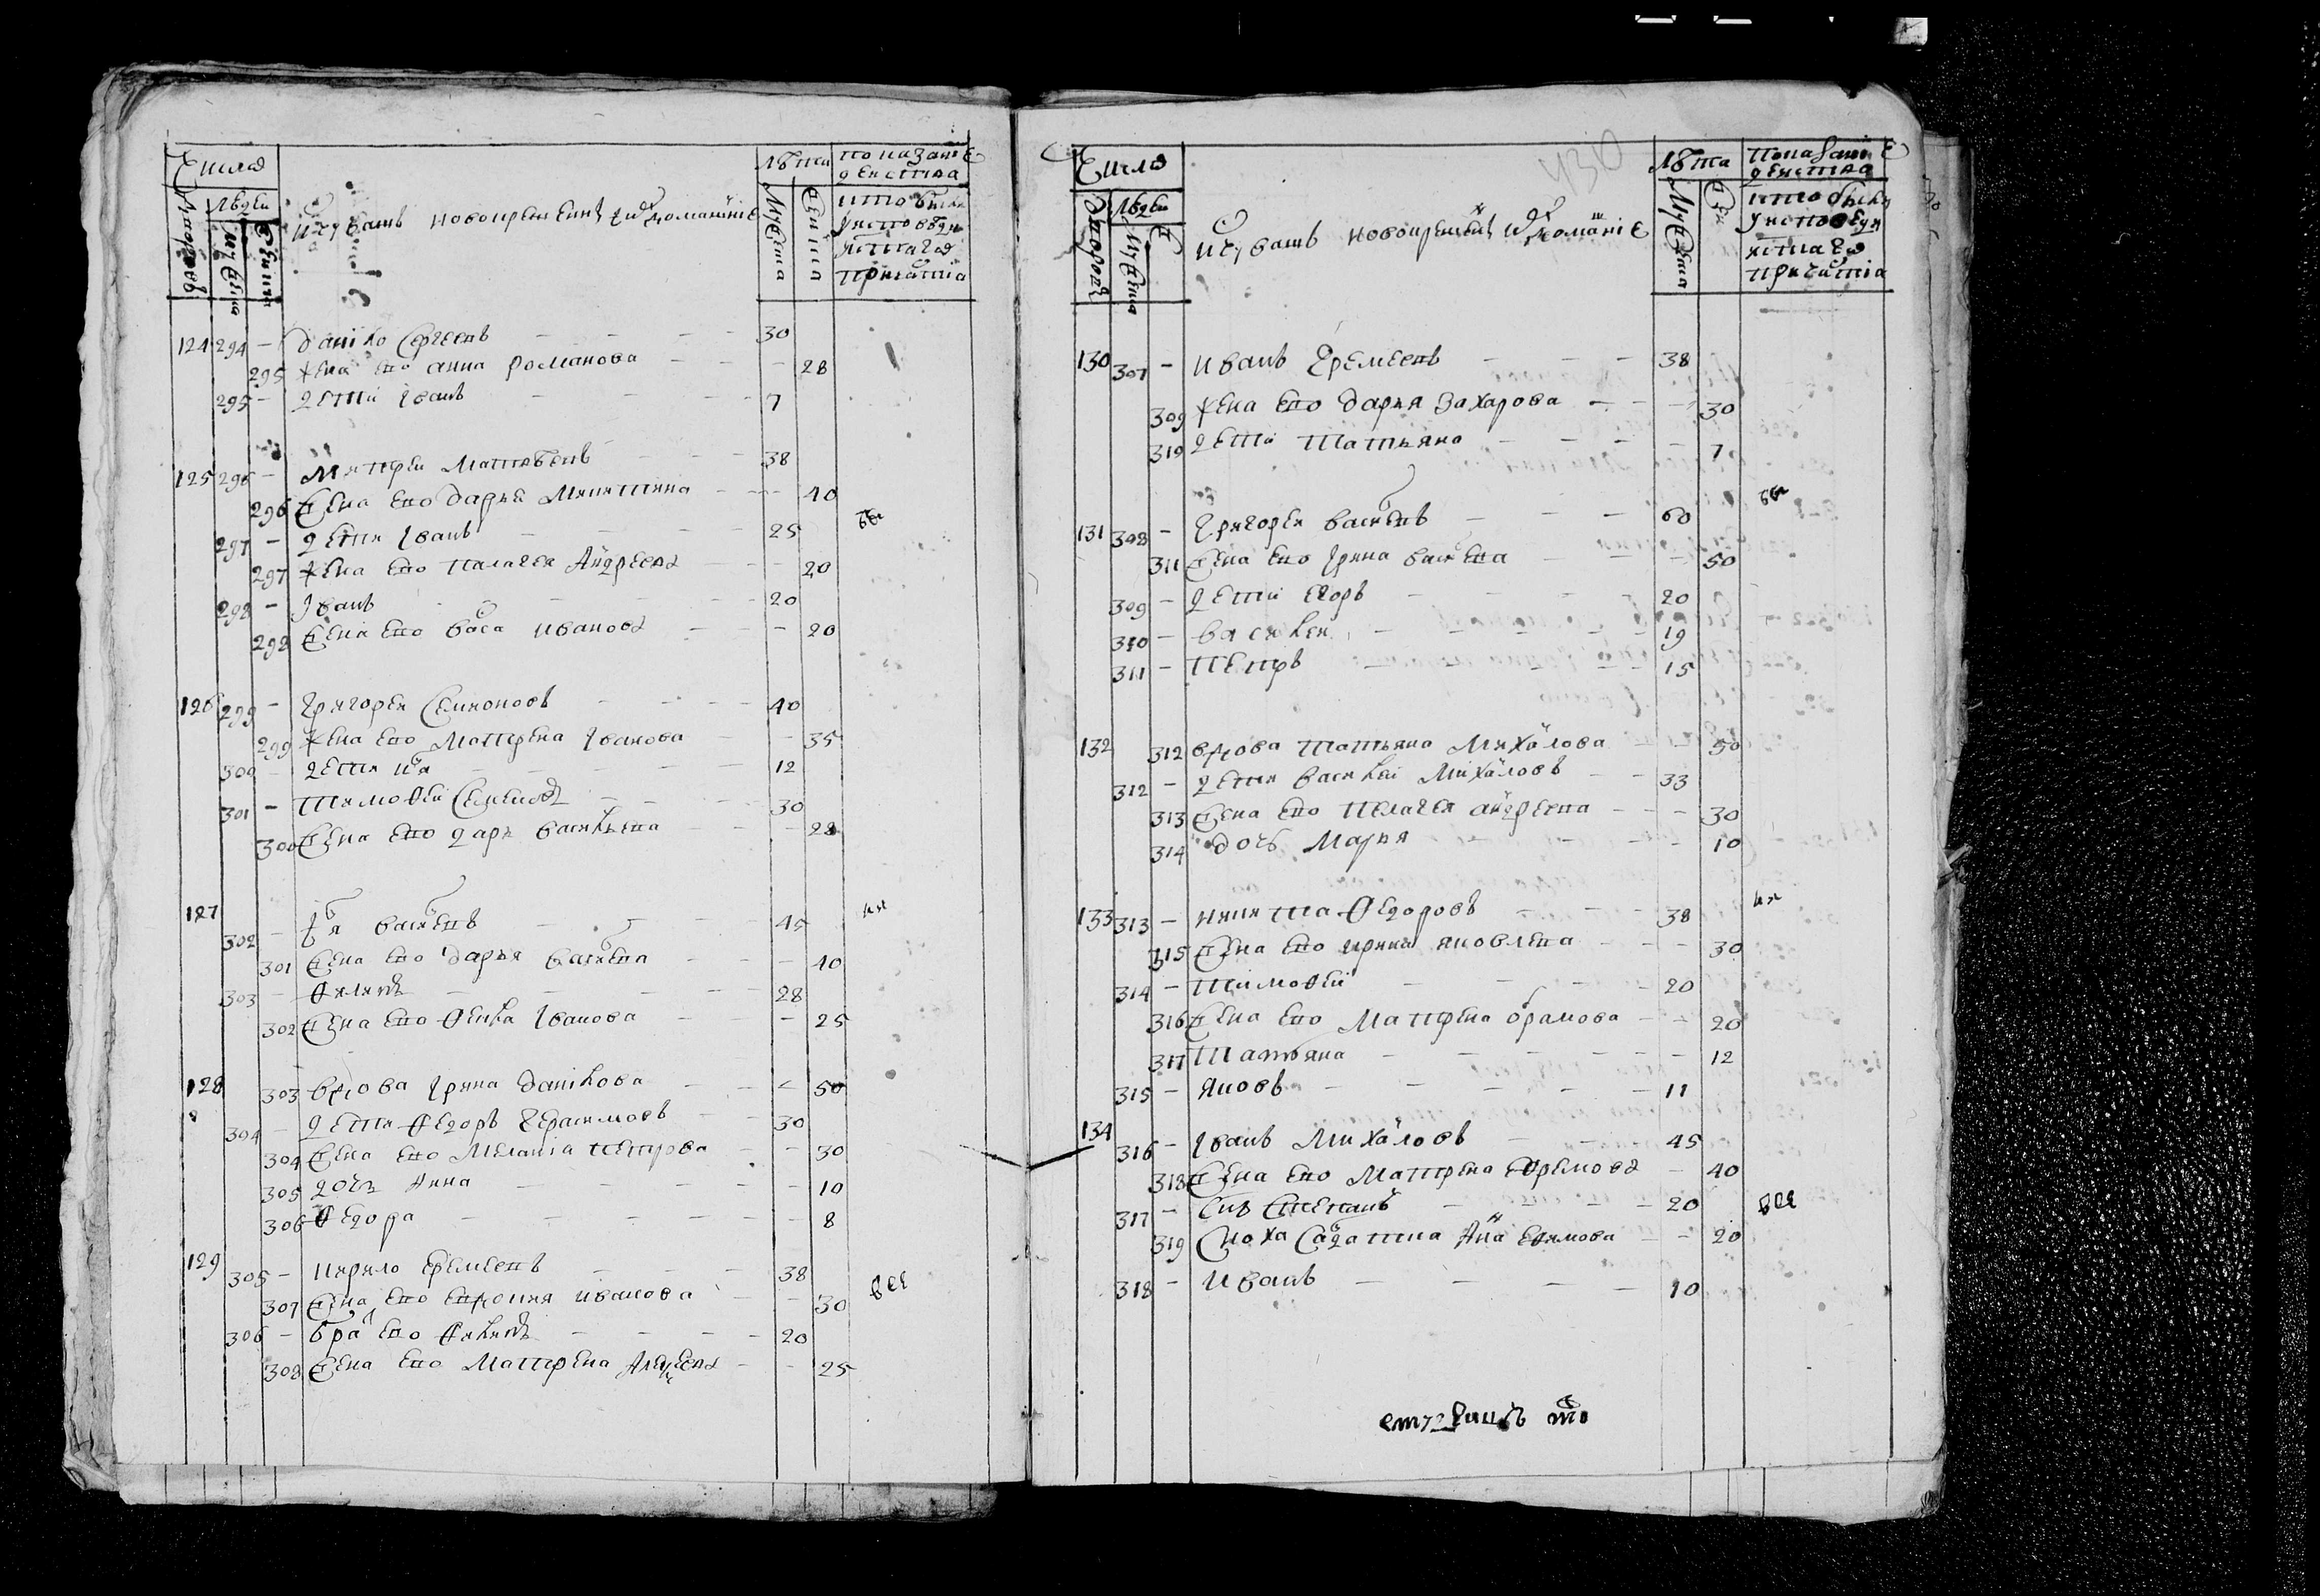 Число
Людеи
Дворовъ
Мужеска
Женска
Исчувашъ новокрещенихъ идомашние
Лѣта
Мужеска
Женска
показание
деиства
кто былъ
уисповѣди
исвятаго
причастия
124 294 - Данило Сергеевъ - - - - 30
295 жена ево анна романова - - - 28
295 - дети Iванъ - - - - 7
125 296 - Дмитреи Матвѣевъ - - - 38
296 жена ево дарья Микитина - - - 40
297 - дети Iванъ - - - - 25
297 жена ево палагея Андреева - - 20
298 - Iванъ - - - - 20
298 жена ево васса иванова - - 20
126 299 - Григореи Семионовъ - - - - 40
299 жена ево Матрена Iванова - - 35
300 - дети - - - - - 12
301 - Тимофеи Семеновъ - - - 30
300 жена ево дарья васильева - - - 28
127
302 - васильевъ - - - 45
301 жена ево дарья васильева - - - 40
303 - Филипъ - - - - - 28
302 жена ево Фекла Iванова - - - 25
128 303 вдова Iрина данилова - - - 50
304 - дети Федоръ Герасимовъ - - 30
304 жена ево Меланiя петрова - - 30
305 дочь Анна - - - - - 10
306 Федора - - - - - - 8
129 305 - кирило Еремеевъ - - - 38
307 жена ево иванова - - 30
все
306 - братъ ево Филипъ - - - - 20
308 жена ево Матрена Алексеева - - 25
430
Число
Людеи
Дворовъ
Мужеска
Жен
Исчувашъ новокрещеныхъ идомашние
Лѣта
Мужеска
Жен
Показание
деиства
кто былъ
уисповеди
исвятаго
причастия
130 307 - иванъ Еремеевъ - - - 38
309 жена ево дарья Захарова - - - 30
310 дети Татьяна - - - - - 7
131 308 - Григореи васильевъ - - - 60
311 жена ево Iрина васильева - - 50
309 - дети Егоръ - - - - 20
310 - василеи - - - - - 19
311 - Петръ - - - - - 15
132 312 вдова татьяна Михаилова - - 50
312 - дети василеи Михаиловъ - - 33
313 жена ево Пелагея андреева - - - 30
314 дочь Марья - - - - - 10
133 313 - никита Федоровъ - - - 38
315 жена ево ирина яковлева - - - 30
314 - Тимофеи - - - - 20
316 жена ево Матрена - - 20
317 Татьяна - - - - - - 12
315 - Яковъ - - - - - 11
134
316 - Iванъ Михаиловъ - - 45
318 жена ево Матрена Ефремова - 40
317 - Сынъ Степанъ - - - - 20
все
319 Сноха Салдатка Анна Ефимова - - 20
318 - Иванъ - - - - 10